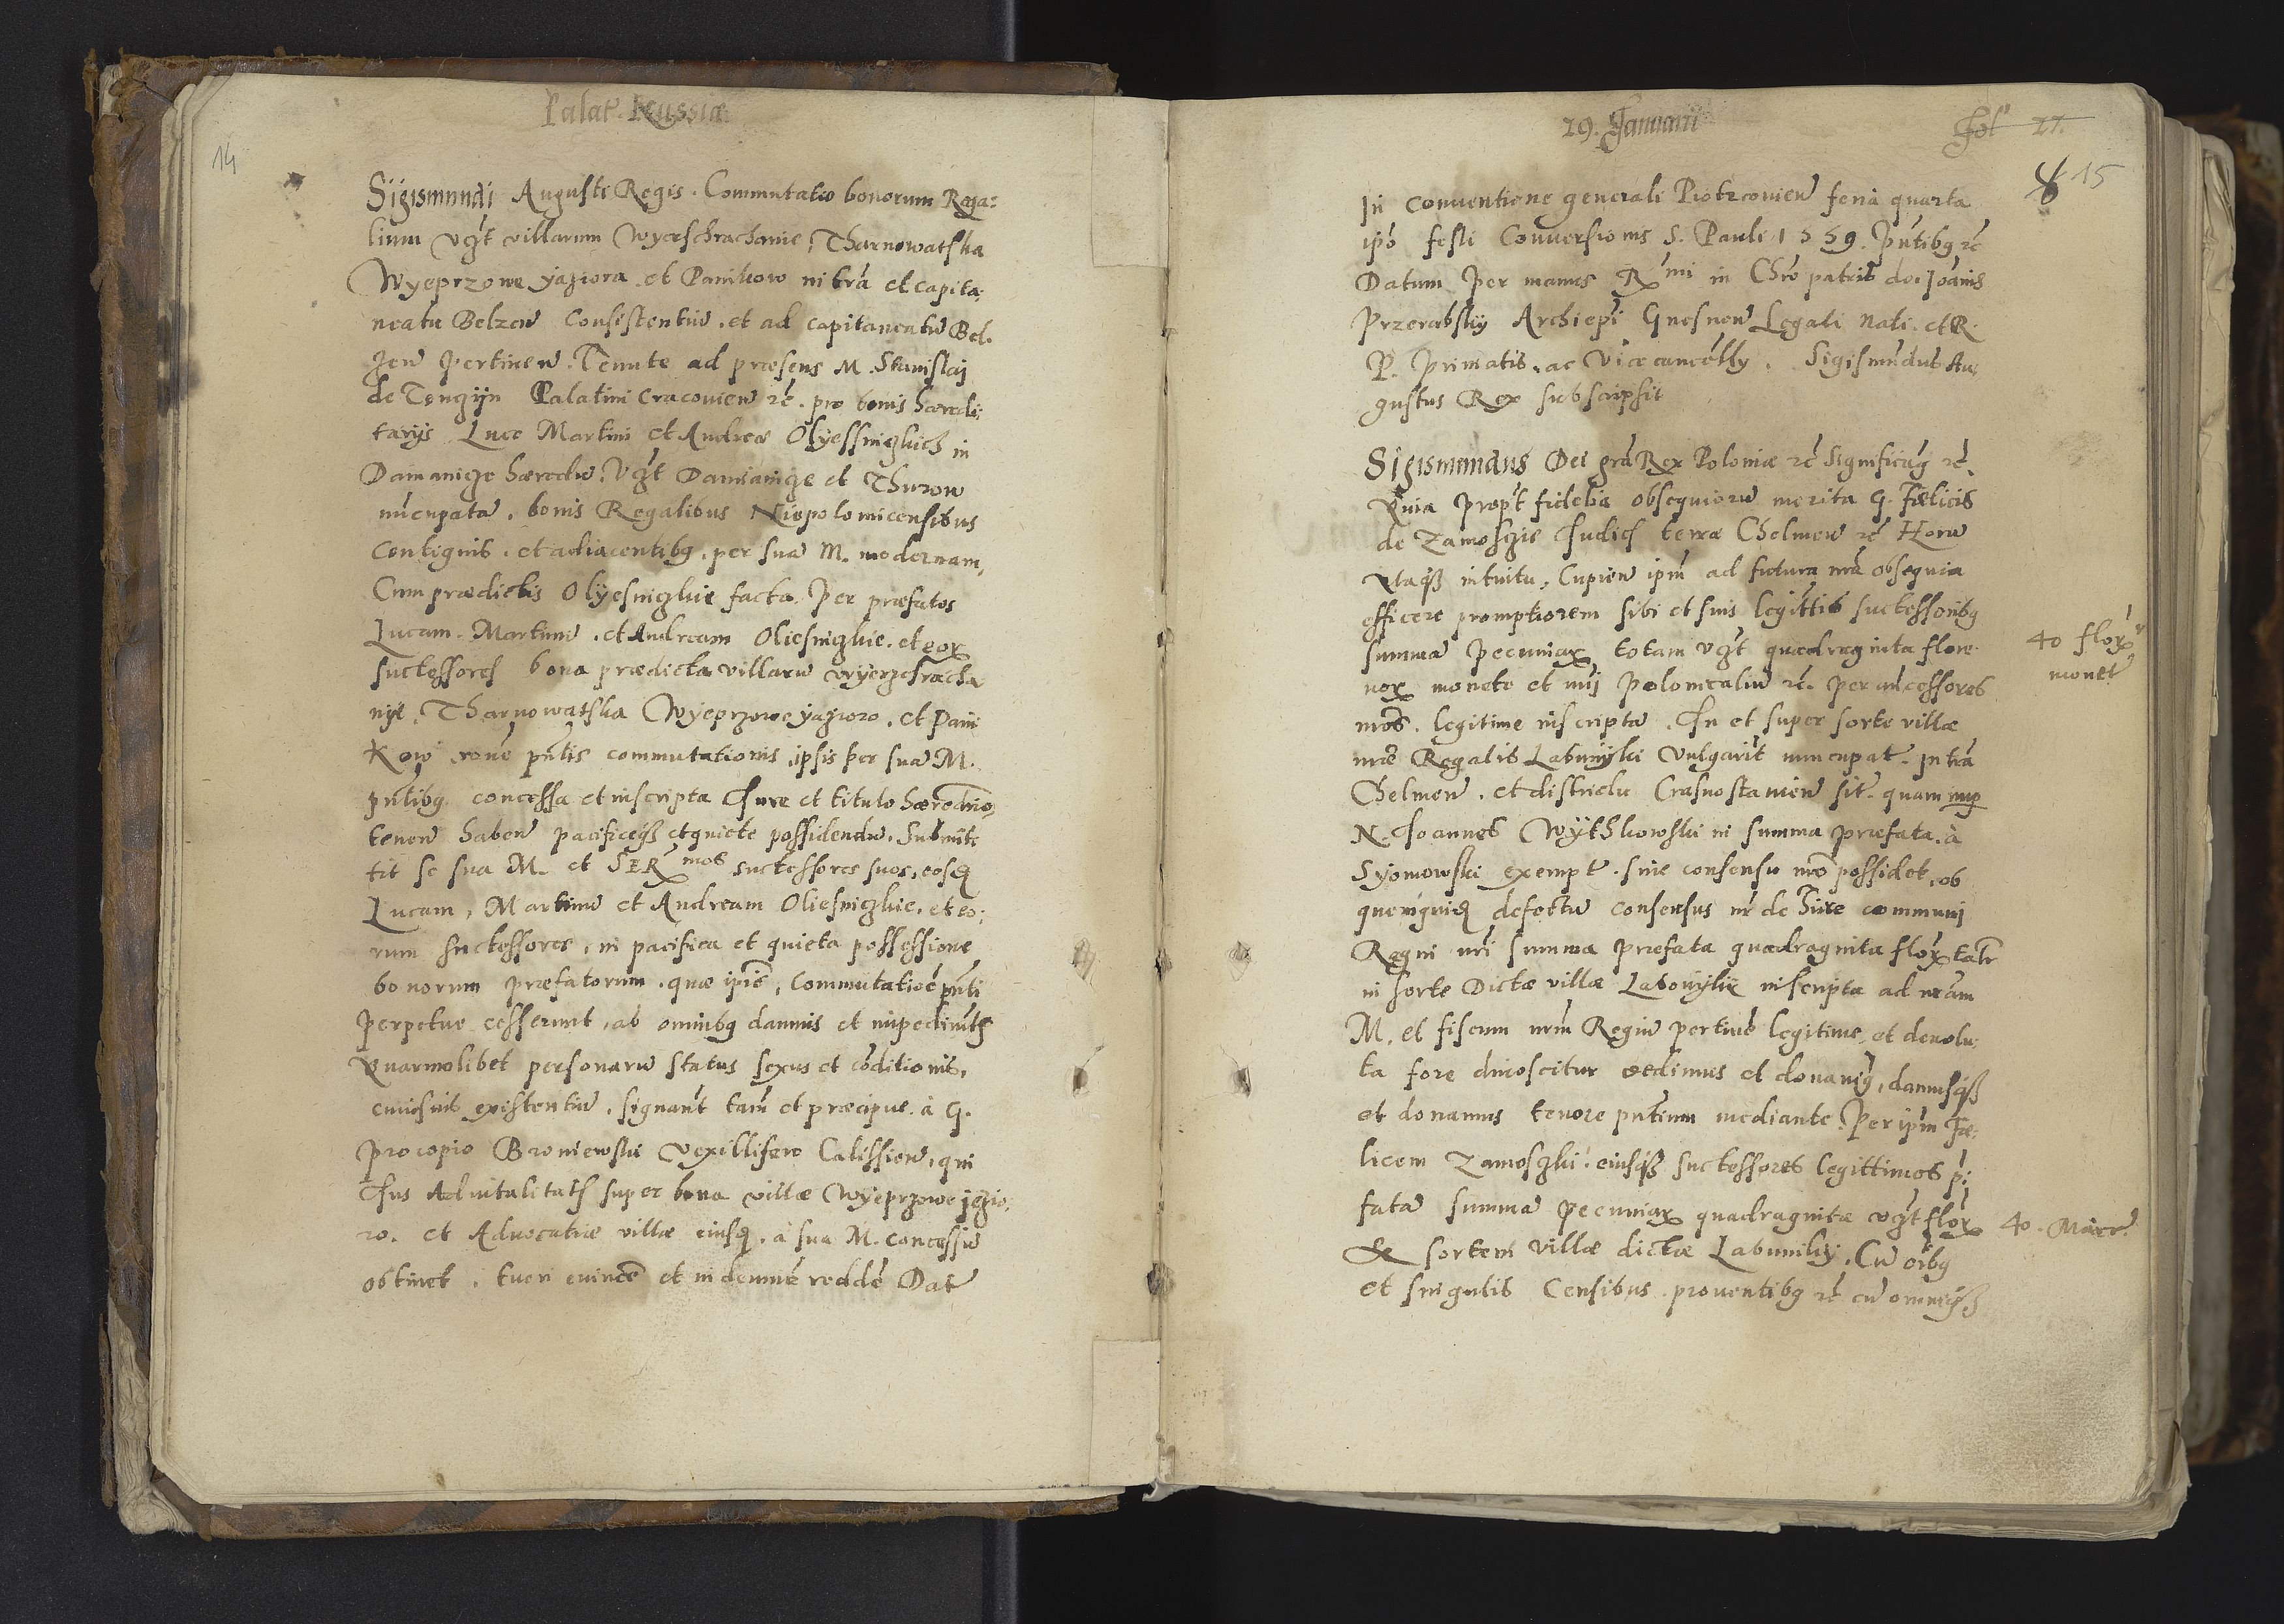 Palat. Russiæ
14
Sigismundi Augusti Regis. Commutatio bonorum Rega:
lium vgt villarum Wyerschrachanie, Tharnowatska
Wyeprzowe yaziora et Panikow in tra et capita:
neatu Belzen Consistentiu. et ad capitaneatu Bel:
zen pertinen. Tenute ad præsens M. Stanislaj
de Tenczijn Palatini Cracovien rc. pro bonis hæredi:
tarijs Luce Martini et Andreæ Olyessniczkich in
Damanicze hæredu. Vgt Damianicze et Thurow
nucupata. bonis Regalibus Niepolomicensibus
Contiguis. et adiacentibg. per sua M. modernam,
Cum prædictis Olyesniczkie facta. Per præfatos
Lucam. Martinu. et Andream Oliesniczkie. et eor
suctessores bona prædicta villaru wyerzchracha
nye. Tharnowatska Wyeprzowe yazioro. et Pani
Kow rone pntis commutationis ipsis per sua M.
pntibg concessa et inscripta Jure et titulo hæreditrio,
tenen haben pacificeqz et quiete possidendu. Submit:
tit se sua M. et SER mos suctessores suos, eosq
Lucam, Martinu et Andream Oliesniczkie. et eo:
rum suctessores, in pacifica et quieta possessione
bonorum præfatorum. quæ ipis, Commutatioe pnti
perpetue cesserunt, ab omnibg damnis et impedimtis
Quarmolibet personaru status sexus et coditionis,
cuiusuis existentiu. signant tam et præcipue à G.
Procopio Broniewski Vexillifero Calissien, qui
Jus Aduitalitatis super bona villæ Wyeprzowe jezio:
ro. et Aduocatiæ villæ eiusq. à sua M. concessu
obtinet. tueri euince et indemne redde Dat
29. Januarii
fol 27.
8 15
In Conuentione generali Piotrcovien feria quarta
ipo festi Conuersionis S. Pauli 1559. pntibg rc
Datum per manus R mi in Chro patris do. Joanis
Przerebsky Archiepi Gnesnen Legati Nati. et R.
P. Primatis. ac Vicecancelly. Sigismudus Au,
gustus Rex subscripsit
Sigismundus Dei gra Rex Poloniæ rc Significag rc.
Quia propt fidelia obsequioru merita G. Fælicis
de Zamoszcie Judicis terræ Chelmen rc Horu
itaqz intuitu, Cupien ipm ad futura nra obsequia
efficere promptiorem sibi et suis legittis suctessoribg
summa pecuniar totam vgt quadraginta flore:
nor monete et nuj Polonicaliu rc. per ancessores
nros. legitime inscripta. In et super sorte villæ
nræ Regalis Labunyki Vulgarit nuncupat. in tra
Chelmen. et districtu Crasnostauien sit. quam nup
N. Joannes Wytskowski in summa præfata. à
Syomowski exempt. sine consensu nro possidet, ob
quemquiq defectu consensus nr de Jure communi
Regni nri summa præfata quadraginta flor talr
in sorte Dictæ villæ Labonykj inscripta ad nram
M. et fiscum nrm Regiu pertinens legitime et deuolu:
ta fore dinoscitur dedimus et donauig, damusqz
et donamus tenore pntium mediante. Per ipm Fæ:
licem Zamoszki. eiusqz suctessores legittimos p:
fata summa pecuniar quadraginta vgt flor
& sortem villæ dictæ Labuniky, Cu oibg
et singulis Censibus. prouentibg rc cu omniqz
40 flor
monet
40. Marc.